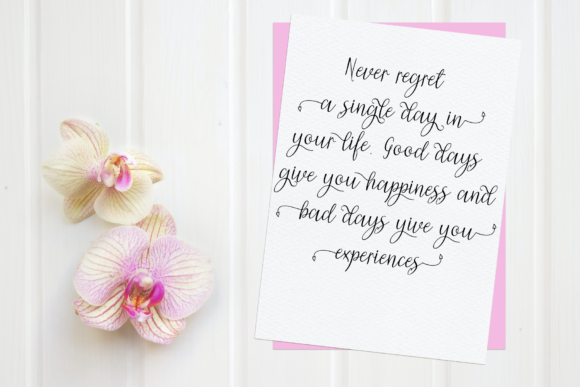 Never regret
a single day in
your life. Good days
give you happiness and
bad days yive you
experiences